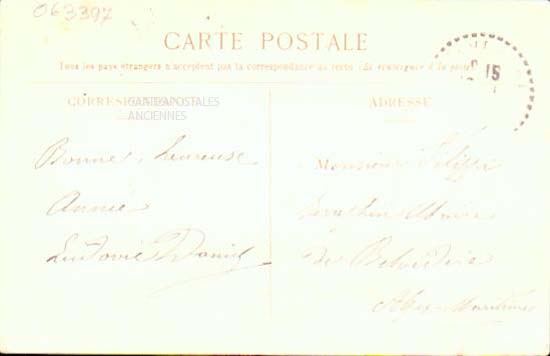 063397
CARTE POSTALE
Tous les pays étrangers n'acceptent pas la correspondance au recto (Se renseigner à la poste)
CORRESPONDANCE
CARTES POSTALES
ANCIENNES
Bonne heureuse
Année
Ludovic Daniel
ADRESSE
15
Monsieur
de Belvédère
Alpes-Maritimes